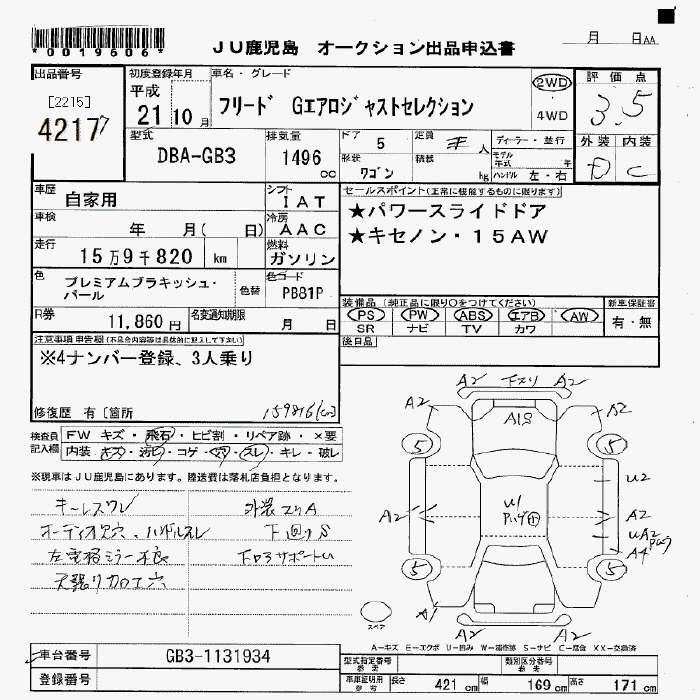 *0019606*
JU鹿児島 オークション出品申込書
月 日AA
出品番号
[2215]
4217
初度登録年月
平成
21 10月
車名・グレード
フリード Gエアロジャストセレクション
2WD
・
4WD
評価点
3.5
外装 内装
D C
型式
DBA-GB3
排気量
1496
cc
ドア 5
形状 ワゴン
定員 人
積載 kg
ディーラー・並行
モデル年式 年
ハンドル 左・右
車歴
自家用
シフト
IAT
車検
年 月( 日)
冷房
AAC
走行
15万9千820 km
燃料
ガソリン
色
プレミアムブラキッシュ・パール
色替
色コード
PB81P
R券
11,860円
名変通知期限
月 日
セールスポイント(正常に機能するものに限ります)
★パワースライドドア
★キセノン・15AW
装備品(純正品に限り○をつけてください)
新車保証書
PS PW ABS エアB AW
SR ナビ TV カワ
有・無
後日品
注意事項 申告欄(不具合内容等は具体的に記入して下さい)
※4ナンバー登録、3人乗り
修復歴 有〔箇所
159816(km)
検査員記入欄
FW キズ・飛石・ヒビ割・リペア跡・×要
内装 キズ・汚ビ・コゲ・・スレ・キレ・破レ
※現車はJU鹿児島にあります。陸送費は落札店負担となります。
キーレスワレ
外装コケA
オーディオ欠穴、ハンドルスレ
下回りS
左電格ミラー不良
下ロアサポートU
天張り加工穴
A2 下スリ A2
A2
A1S
A2
5
5
U2
A2
U1
A2
UA2
A4
5
5
A1
スペア
A2 A2
A-キズ E-エクボ U-凹み W-補修跡 S-サビ C-腐食 XX-交換済
車台番号
GB3-1131934
登録番号
型式指定番号
参考
類別区分番号
参考
車庫証明用
参考
長さ 421 cm
幅 169 cm
高さ 171 cm